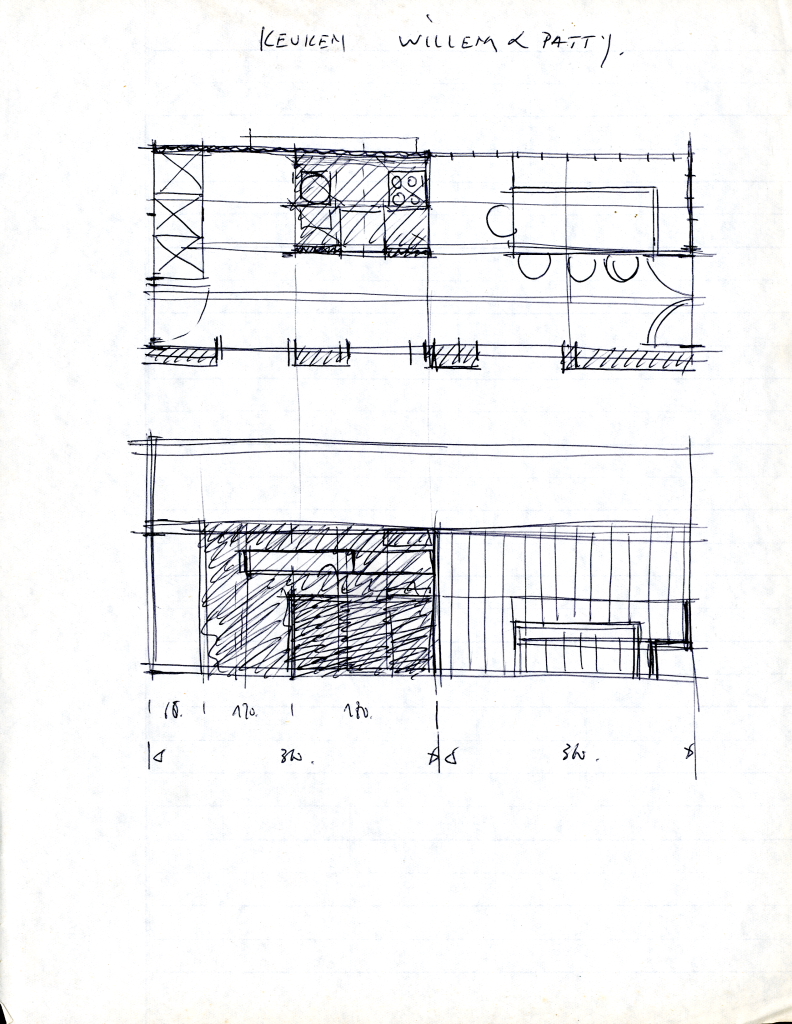 KEUKEN WILLEM & PATTY.
60. 120. 180.
360. 360.